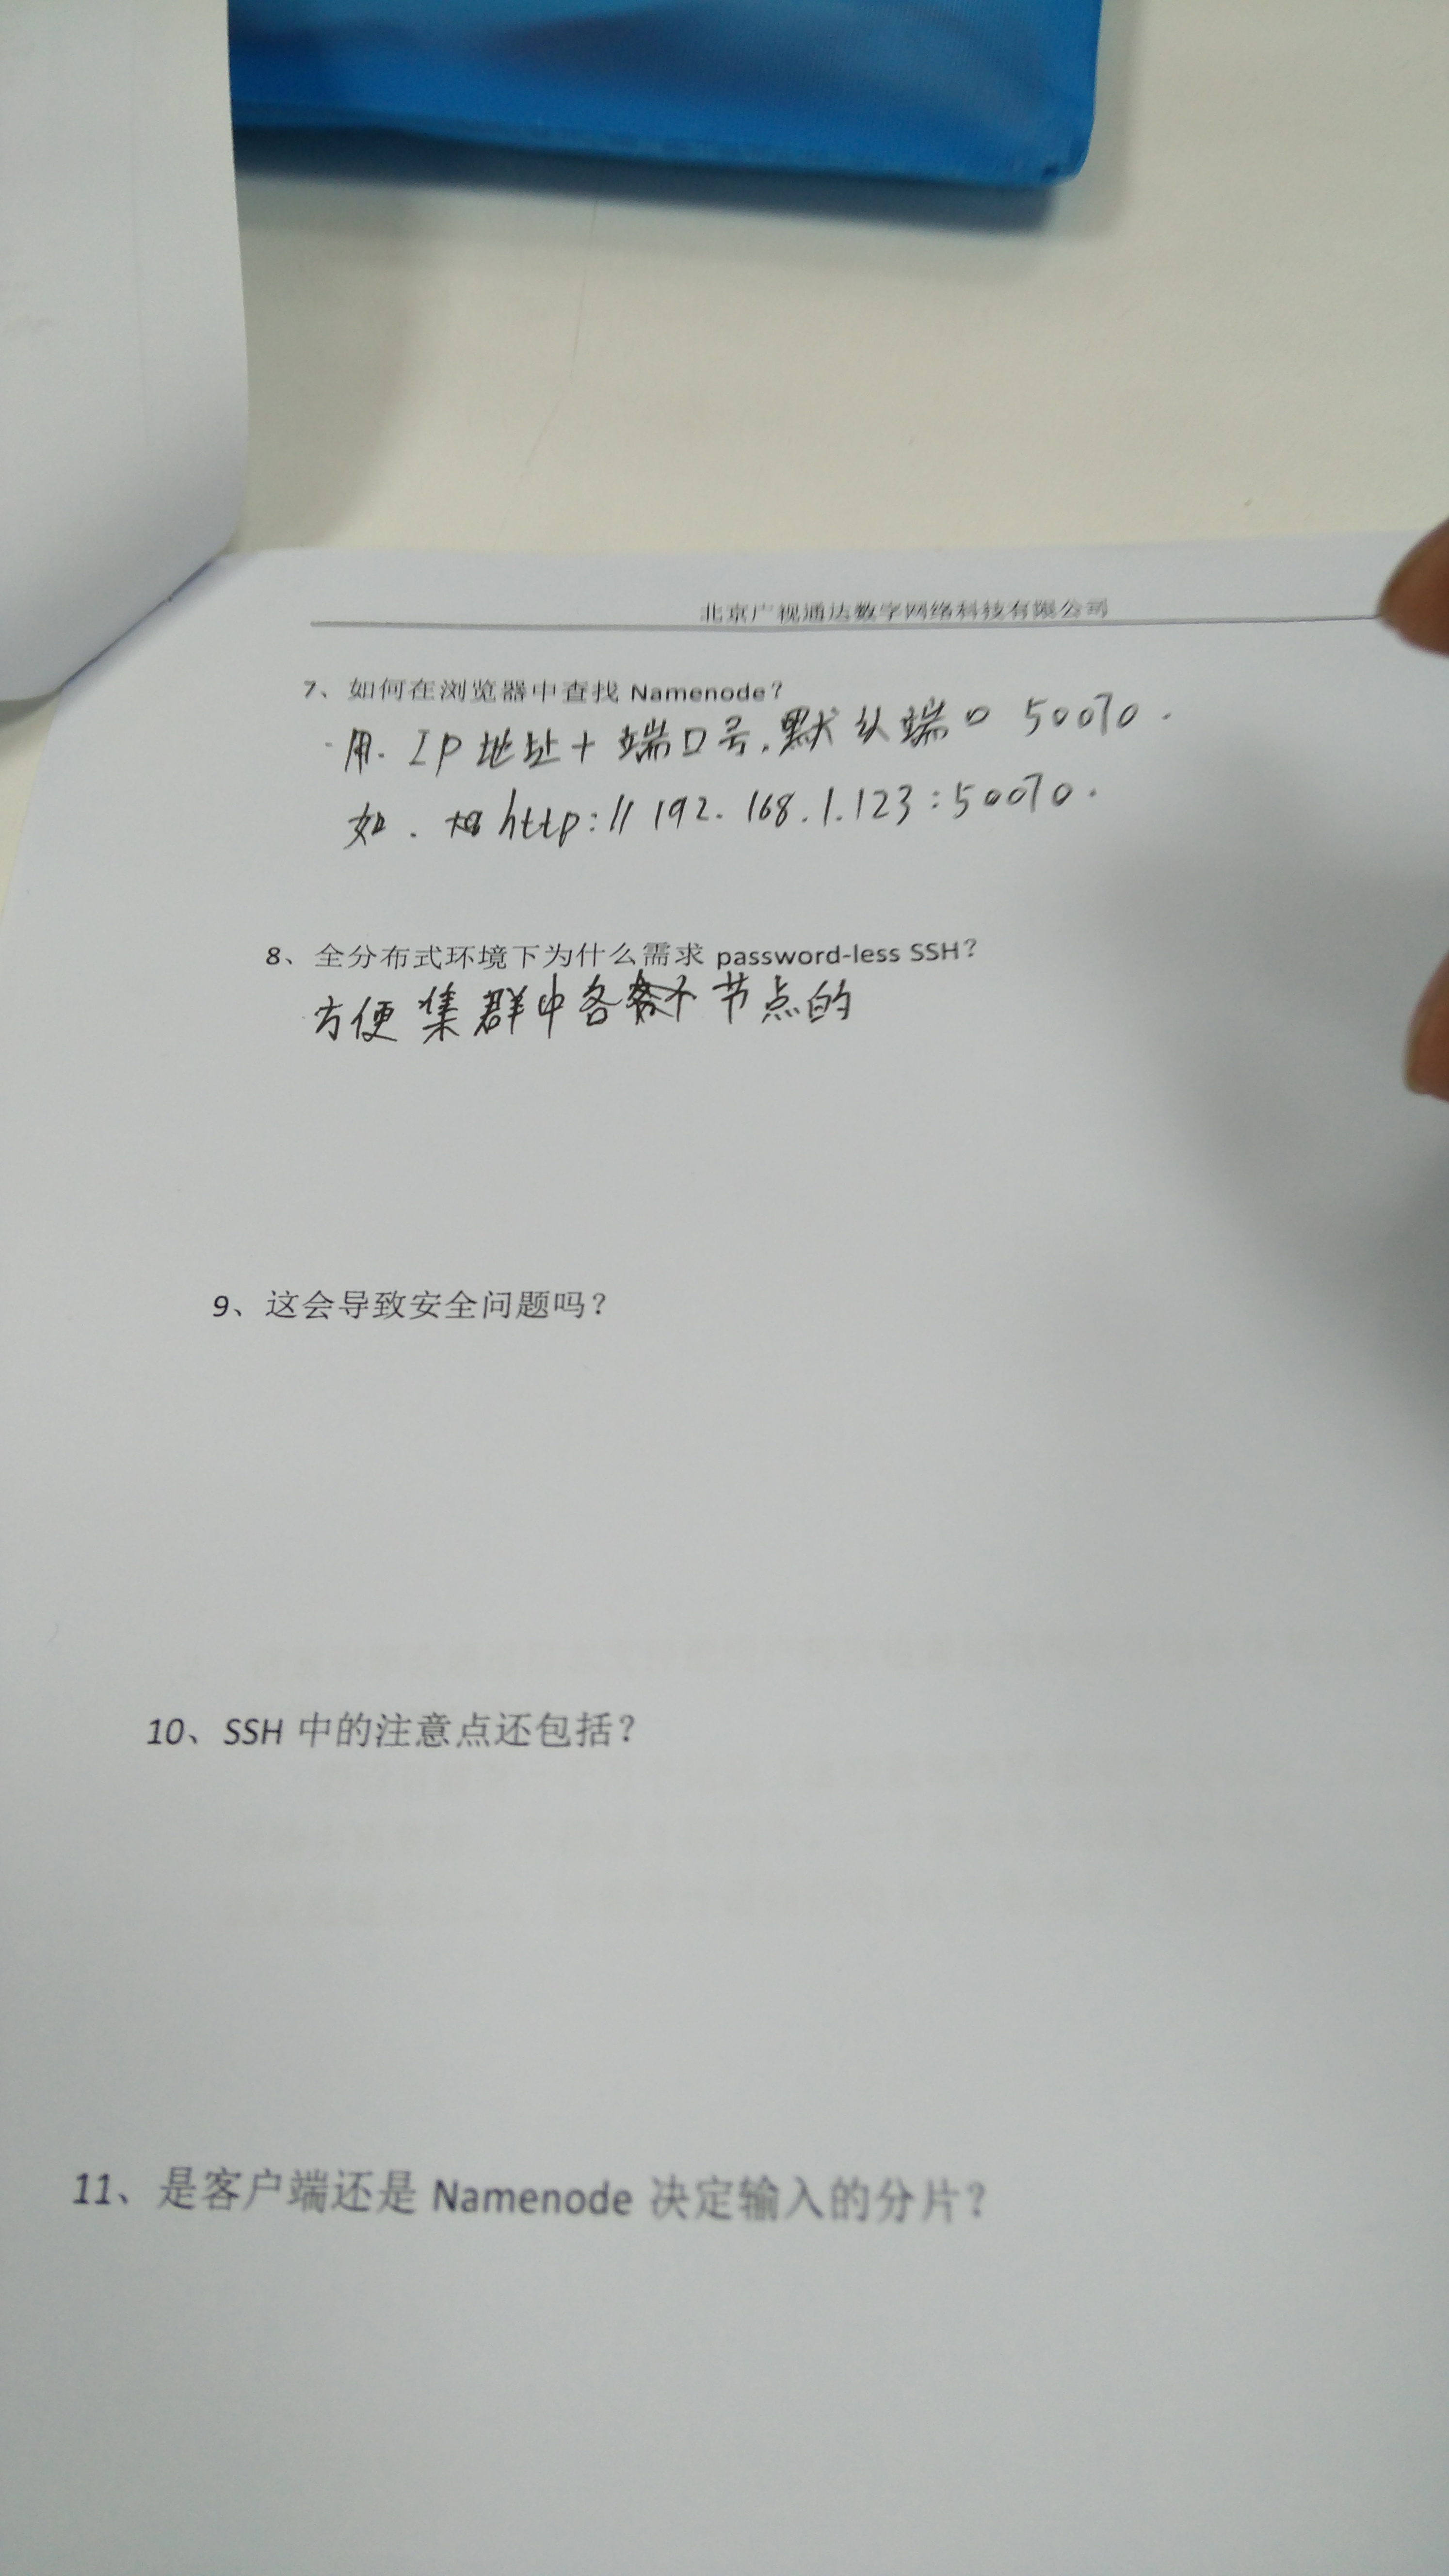 北京广视通达数字网络科技有限公司
7、如何在浏览器中查找 Namenode？
用. IP地址+端口号,默认端口 50070.
如. http://192.168.1.123:50070.
8、全分布式环境下为什么需求 password-less SSH？
方便集群中各个节点的
9、这会导致安全问题吗？
10、SSH 中的注意点还包括？
11、是客户端还是 Namenode 决定输入的分片？